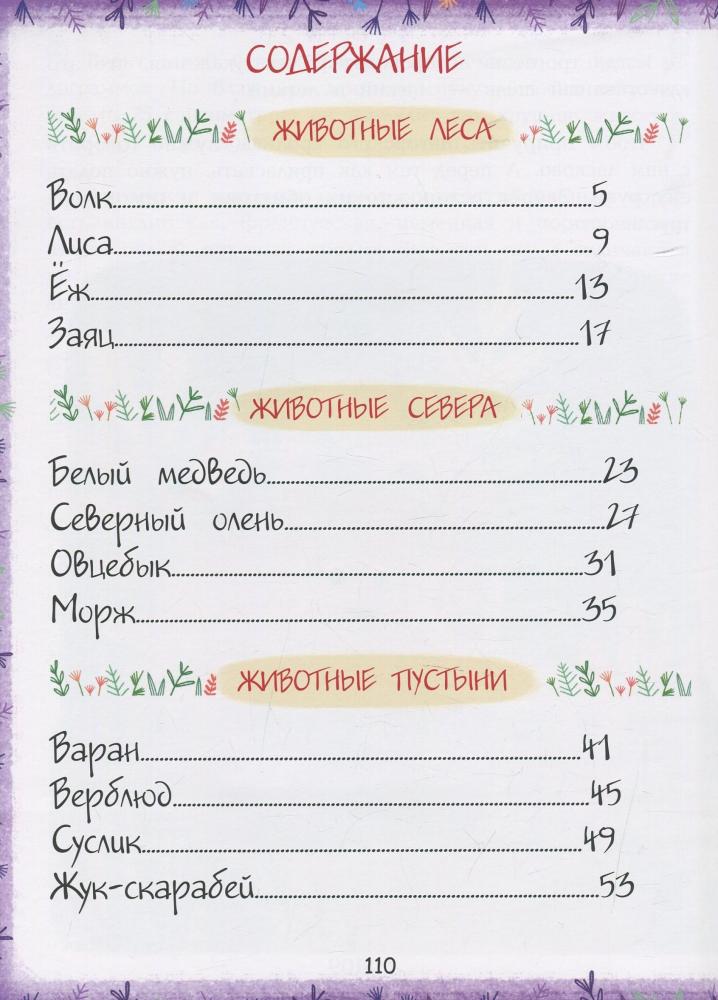 СОДЕРЖАНИЕ
ЖИВОТНЫЕ ЛЕСА
Волк................5
Лиса................9
Ёж................13
Заяц................17
ЖИВОТНЫЕ СЕВЕРА
Белый медведь................23
Северный олень................27
Овцебык................31
Морж................35
ЖИВОТНЫЕ ПУСТЫНИ
Варан................41
Верблюд................45
Суслик................49
Жук-скарабей................53
110